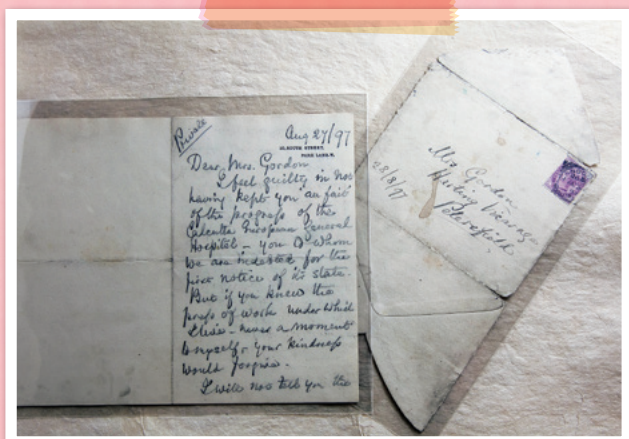 Private
Aug 27/97
STREET,
PARK LANE. W.
Dear Mrs. Gordon
I feel guilty in not
having kept you au fait
of the progress of the
Calcutta European General
Hospital – you to whom
we are indebted for the
first notice of its state.
But if you knew the
press of work under which
I live – never a moment
to myself – your kindness
would forgive.
I will not tell you the
Mrs Gordon
Harting Vicarage
Petersfield
28/8/97